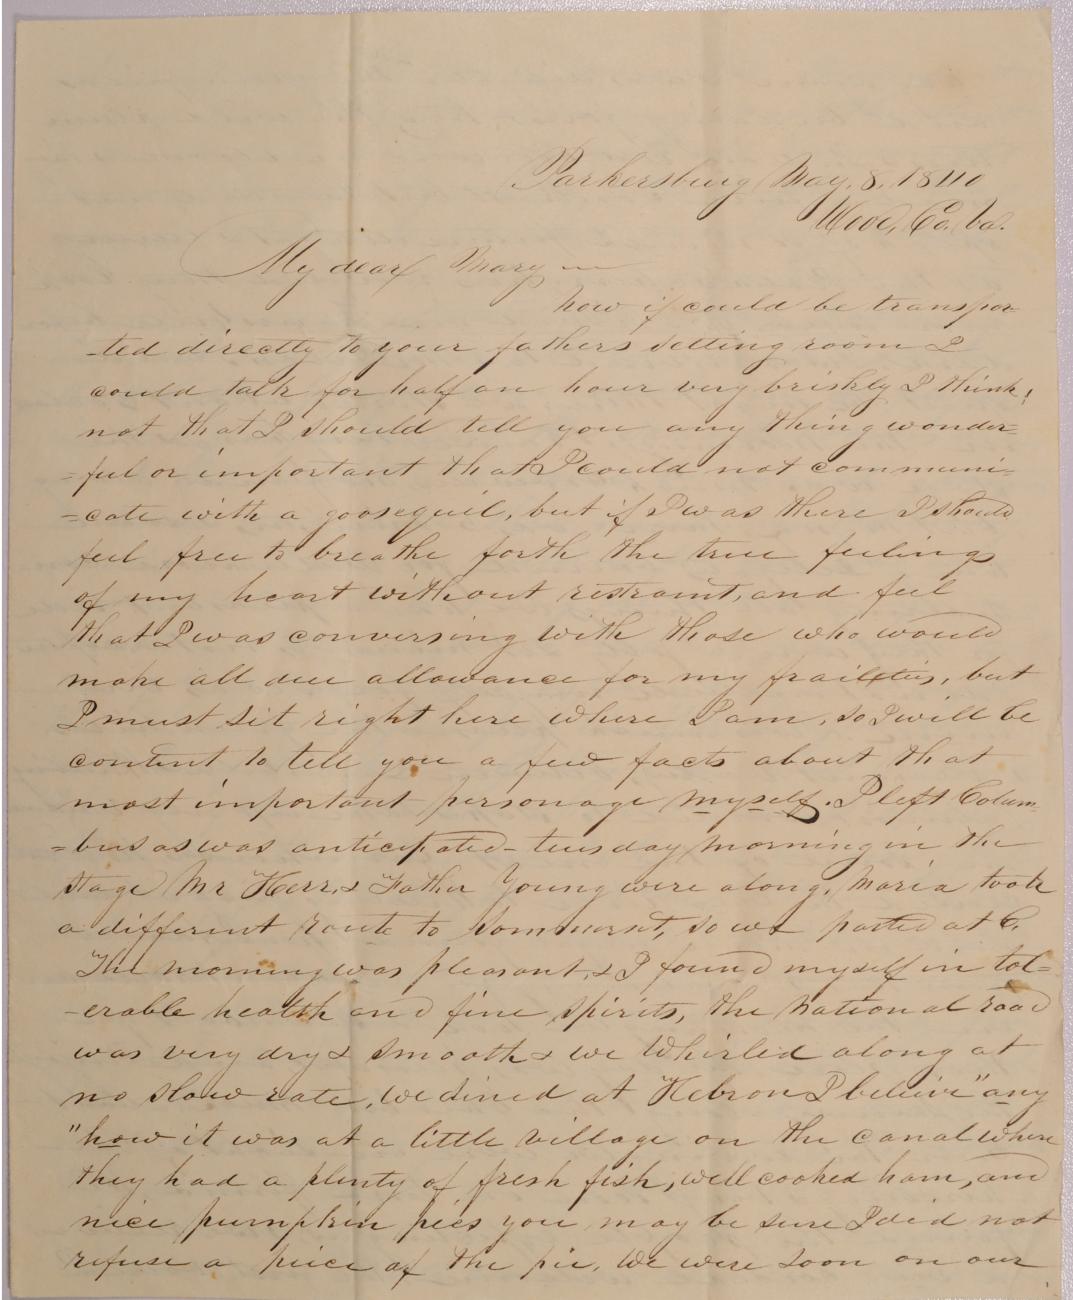 Parkersburg May. 8. 1840
Wood, Co. Va.
My dear Mary —
how if could be transpor-
-ted directly to your fathers setting room I
could talk for half an hour very briskly I think!
not that I should tell you any thing wonder=
=ful or important that I could not communi=
=cate with a goosequil, but if I was there I should
feel free to breathe forth the true feelings
of my heart without restraint, and feel
that I was conversing with those who would
make all due allowance for my frailties, but
I must sit right here where I am, so I will be
content to tell you a few facts about that
most important personage myself. I left Colum-
=bus as was anticipated - tuesday morning in the
stage Mr Herr, & Father Young were along, Maria took
a different route to Sommerset, so we parted at C.
The morning was pleasant, & I found myself in tol=
-erable health and fine spirits, the National road
was very dry & smooth & we whirled along at
no slow rate, we dined at Hebron I believe "any
"how it was at a little village on the canal where
they had a plenty of fresh fish, well cooked ham, and
nice pumpkin pies you may be sure I did not
refuse a peice of the pie. We were soon on our